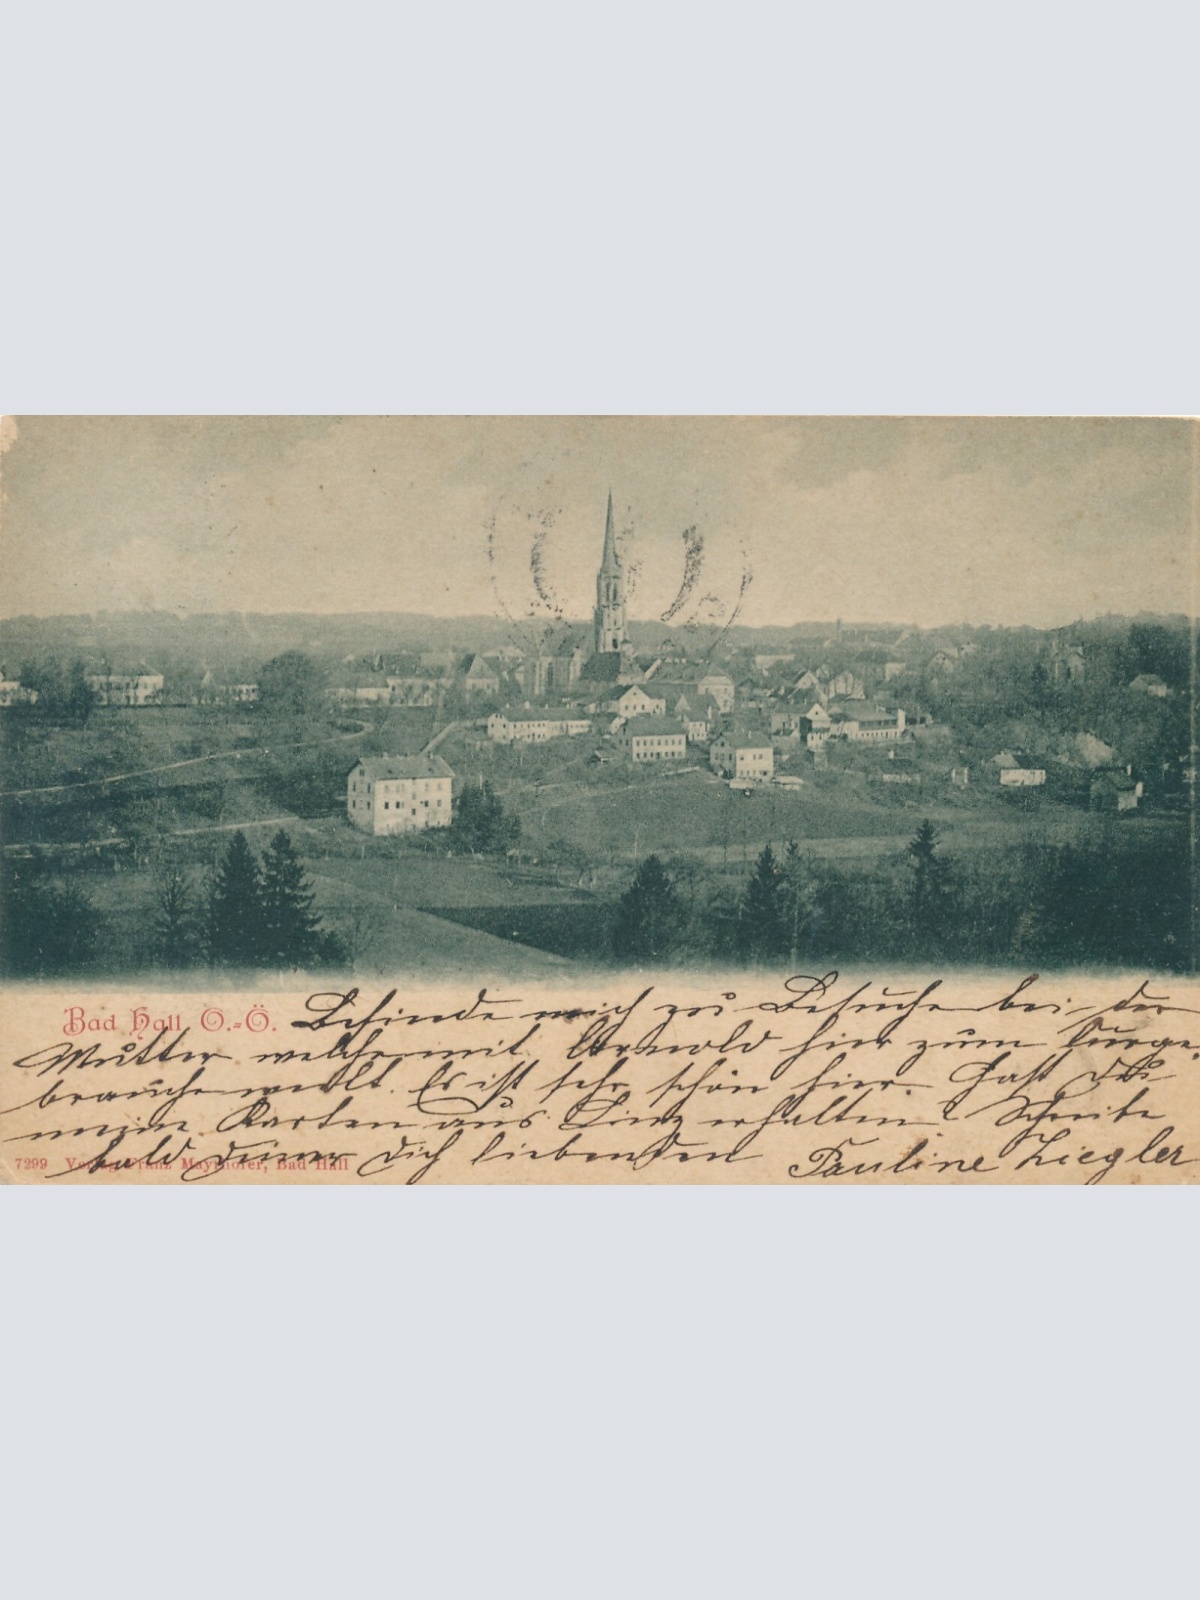 Bad Hall O.-Ö. Befinde mich zu Besuche bei der
Mutter welche mit Arnold hier zum Curge-
brauche weilt. Es ist sehr schön hier. Hast du
meine Karten aus Linz erhalten? Schreibe
bald deiner dich liebenden Pauline Ziegler
7299 Verlag Franz Mayrhofer, Bad Hall